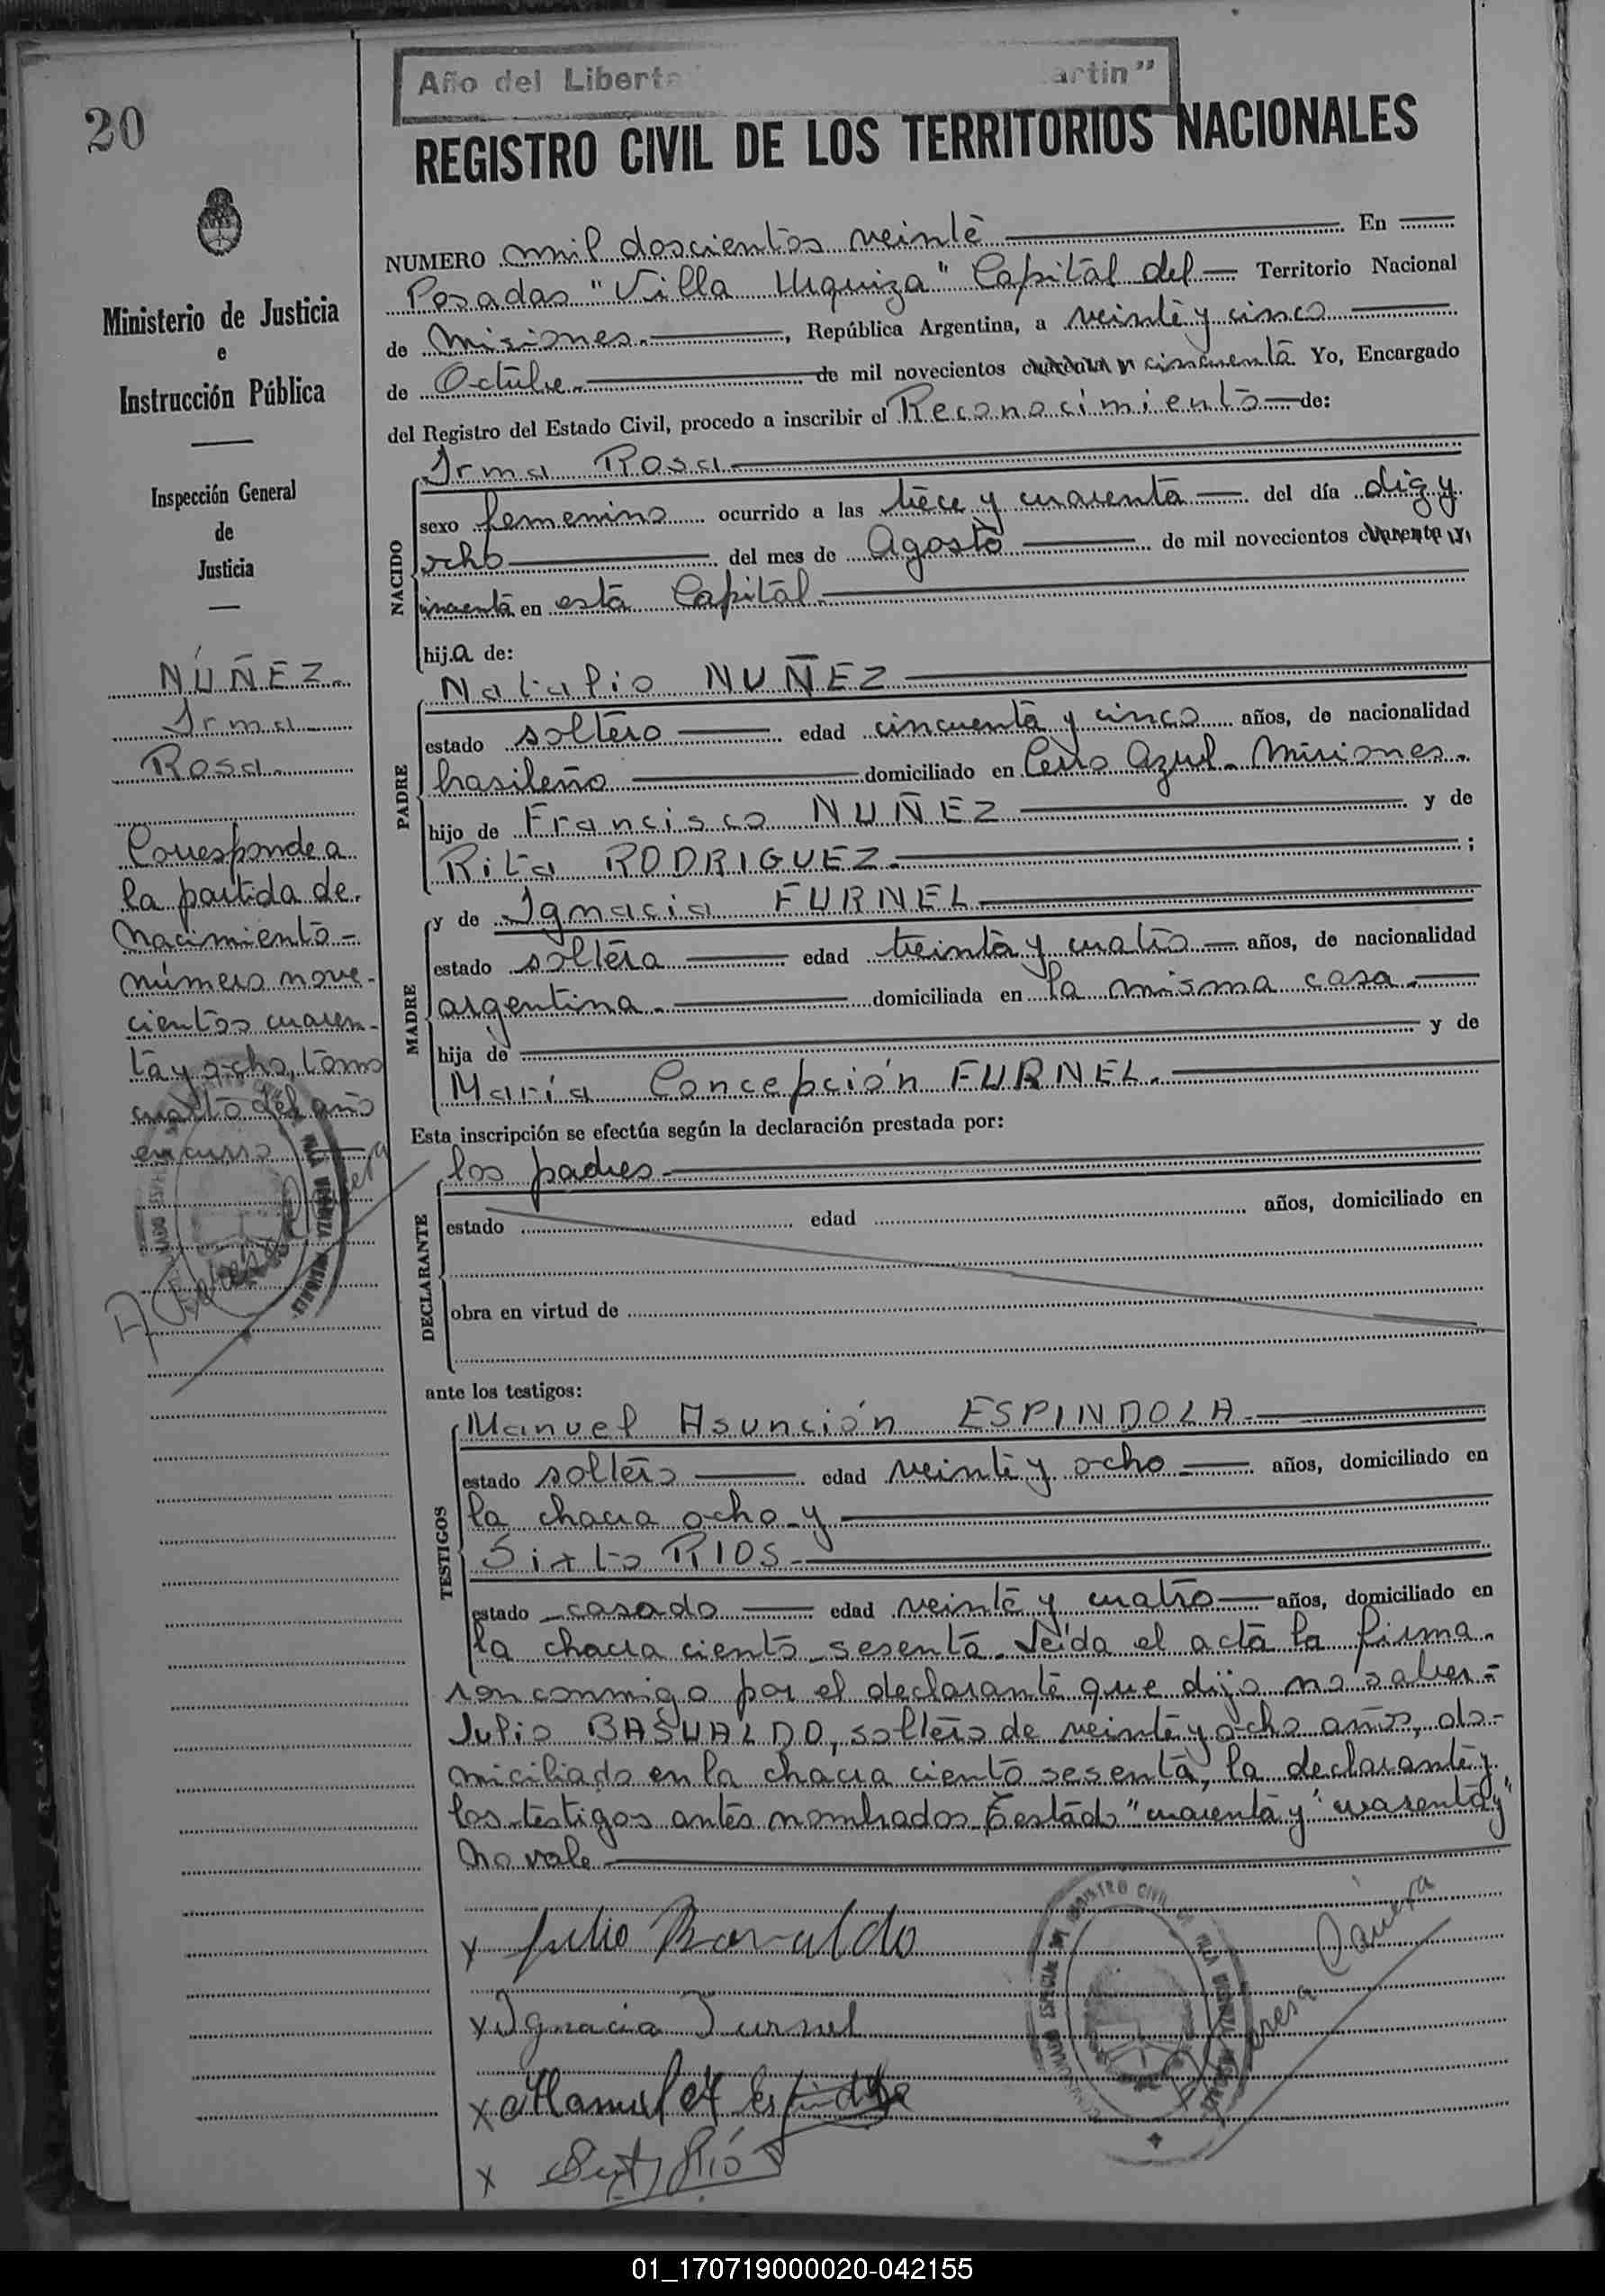 Año del Liberta artin"
20
REGISTRO CIVIL DE LOS TERRITORIOS NACIONALES
Ministerio de Justicia
e
Instrucción Pública
Inspección General
de
Justicia
NÚÑEZ
Irma
Rosa
Corresponde a
la partida de
Nacimiento-
número nove-
cientos cuaren-
ta y ocho, tomo
cuarto del año
en curso
NUMERO mil doscientos veinte En
Posadas "Villa Urquiza" Capital del Territorio Nacional
de Misiones. , República Argentina, a veinte y cinco
de Octubre de mil novecientos cuarenta y cincuenta Yo, Encargado
del Registro del Estado Civil, procedo a inscribir el Reconocimiento de:
Irma Rosa
NACIDO
sexo femenino ocurrido a las trece y cuarenta del día diez y
ocho del mes de Agosto de mil novecientos cuarenta y
cincuenta en esta Capital.
hija de:
Natalio NUÑEZ
PADRE
estado soltero edad cincuenta y cinco años, de nacionalidad
brasileño domiciliado en Cerro Azul - Misiones.
hijo de Francisco NUÑEZ y de
Rita RODRIGUEZ. ;
y de Ignacia FURNEL
MADRE
estado soltera edad treinta y cuatro años, de nacionalidad
argentina. domiciliada en la misma casa.
hija de y de
María Concepción FURNEL.
Esta inscripción se efectúa según la declaración prestada por:
los padres
DECLARANTE
estado edad años, domiciliado en
obra en virtud de
ante los testigos:
Manuel Asunción ESPINDOLA
TESTIGOS
estado soltero edad veinte y ocho años, domiciliado en
la chacra ocho y
Sixto RIOS
estado casado edad veinte y cuatro años, domiciliado en
la chacra ciento sesenta. Leída el acta la firma-
ron conmigo por el declarante que dijo no saber=
Julio BASUALDO, soltero de veinte y ocho años, do-
miciliado en la chacra ciento sesenta, la declarante y
los testigos antes nombrados. Testado "cuarenta y" "cuarenta y"
No vale
x Julio Basualdo
x Ignacia Furnel
x Manuel A Espindola
x Sixto Ríos
01_170719000020-042155